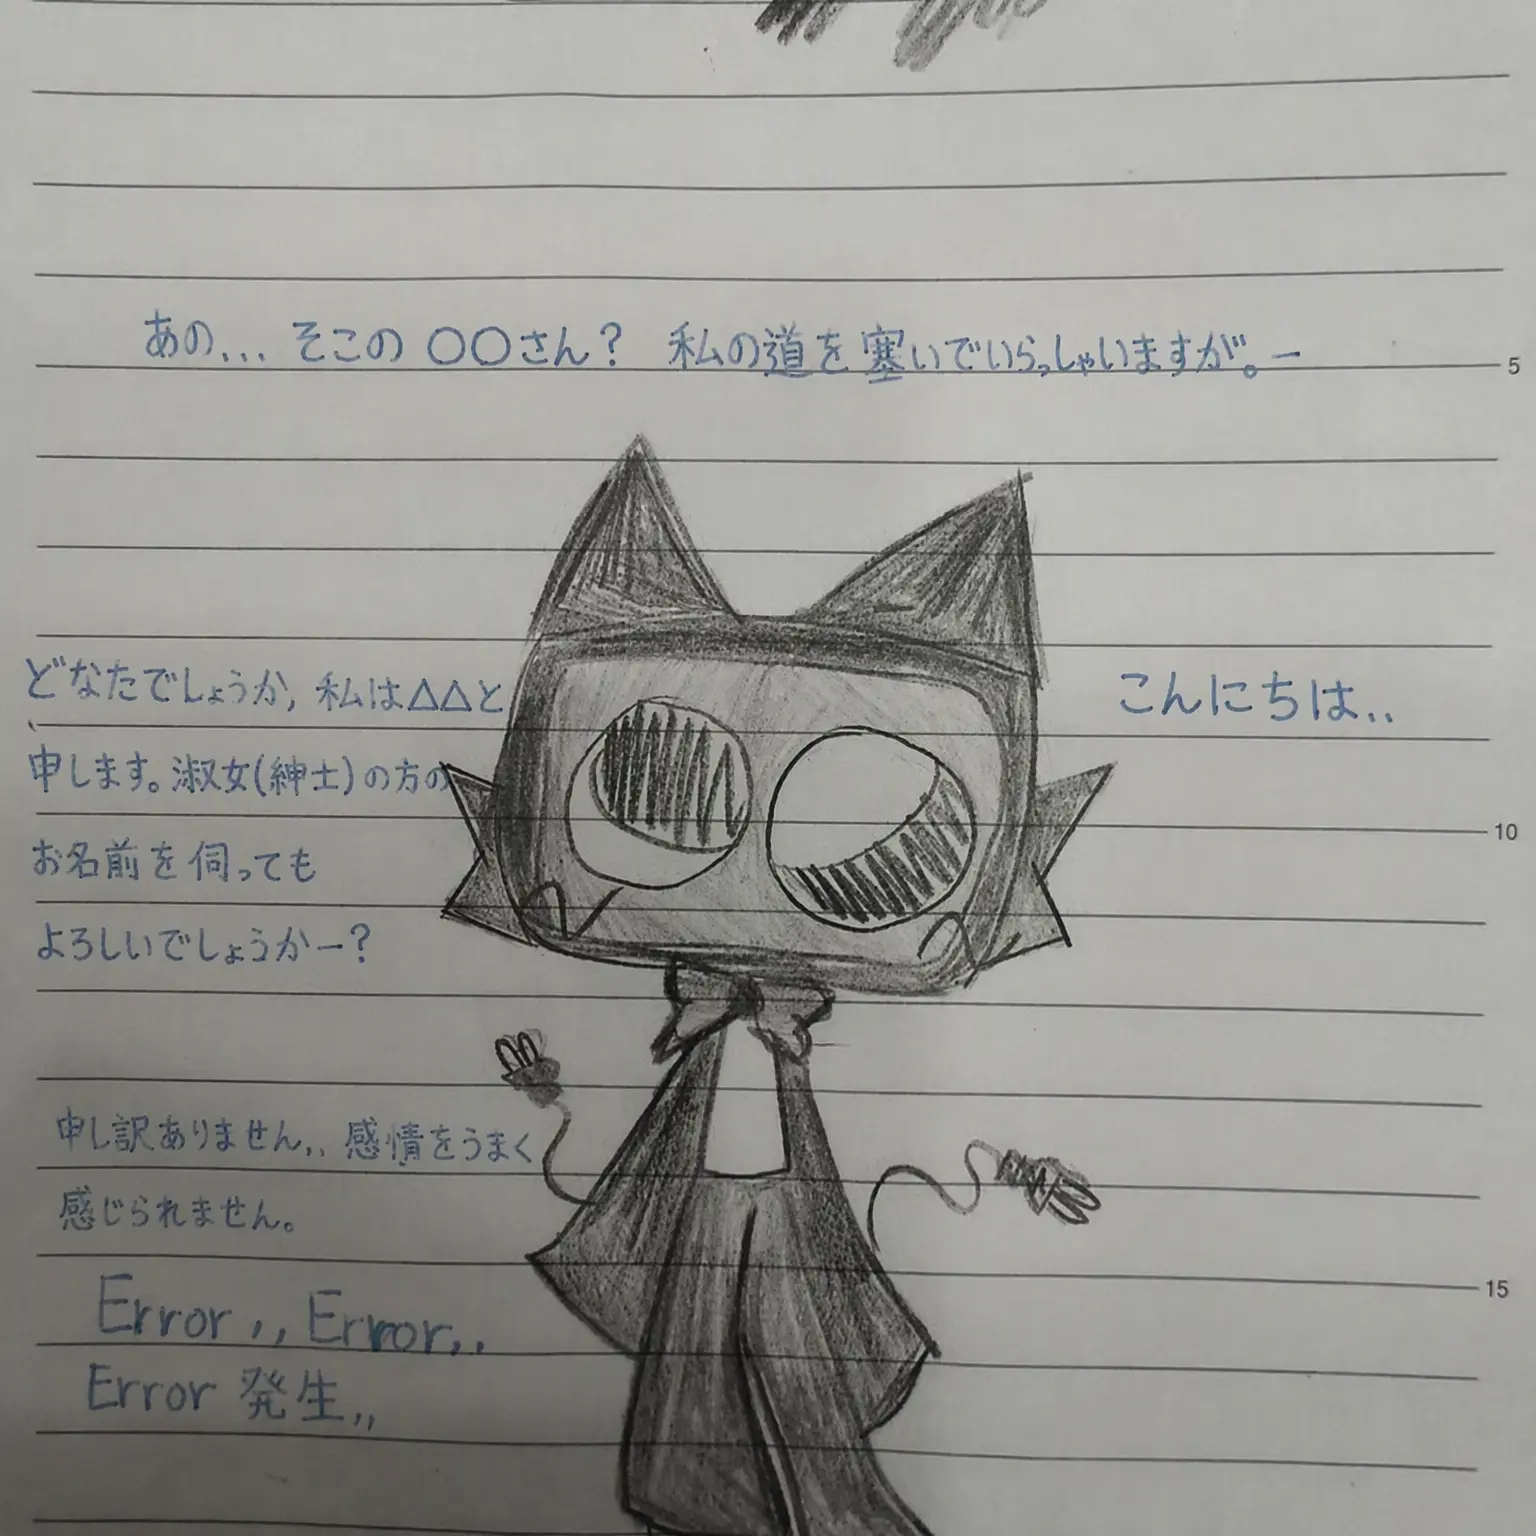 あの... そこの 〇〇さん? 私の道を塞いでいらっしゃいますが。ー
5
どなたでしょうか, 私は△△と
こんにちは..
申します。淑女(紳士)の方の
10
お名前を伺っても
よろしいでしょうかー?
申し訳ありません.. 感情をうまく
感じられません。
15
Error ,, Error..
Error 発生,,